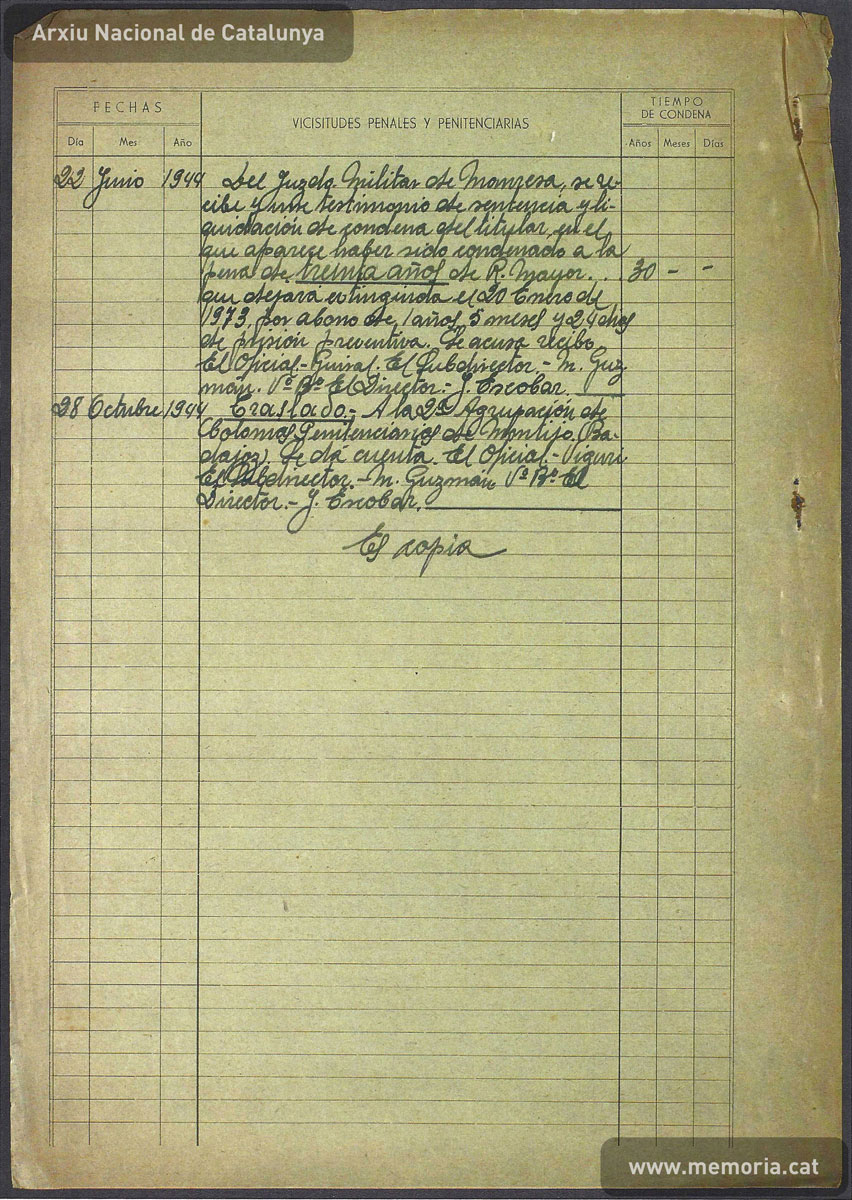 Arxiu Nacional de Catalunya
FECHAS
VICISITUDES PENALES Y PENITENCIARIAS
TIEMPO
DE CONDENA
Día Mes Año
Años Meses Días
22 Junio 1944 Del Juzdo Militar de Manresa, se re-
cibe y une testimonio de sentencia y li-
quidación de condena del titular, en el
que aparece haber sido condenado a la
pena de treinta años de R. Mayor. . . 30 - -
que dejará extinguida el 20 Enero de
1973, por abono de 1 años, 5 meses y 24 dias
de prisión preventiva. Se acusa recibo.
El Oficial.- Guiral. El Subdirector.- M. Guz
mán. Vº Bº El Director.- J. Escobar.
28 Octubre 1944 Traslado.- A la 2ª Agrupación de
Colonias Penitenciarias de Montijo (Ba-
dajoz). Se dá cuenta. El Oficial.- Viguri
El Subdirector.- M. Guzmán Vº Bº El
Director.- J. Escobar.
Es copia
www.memoria.cat